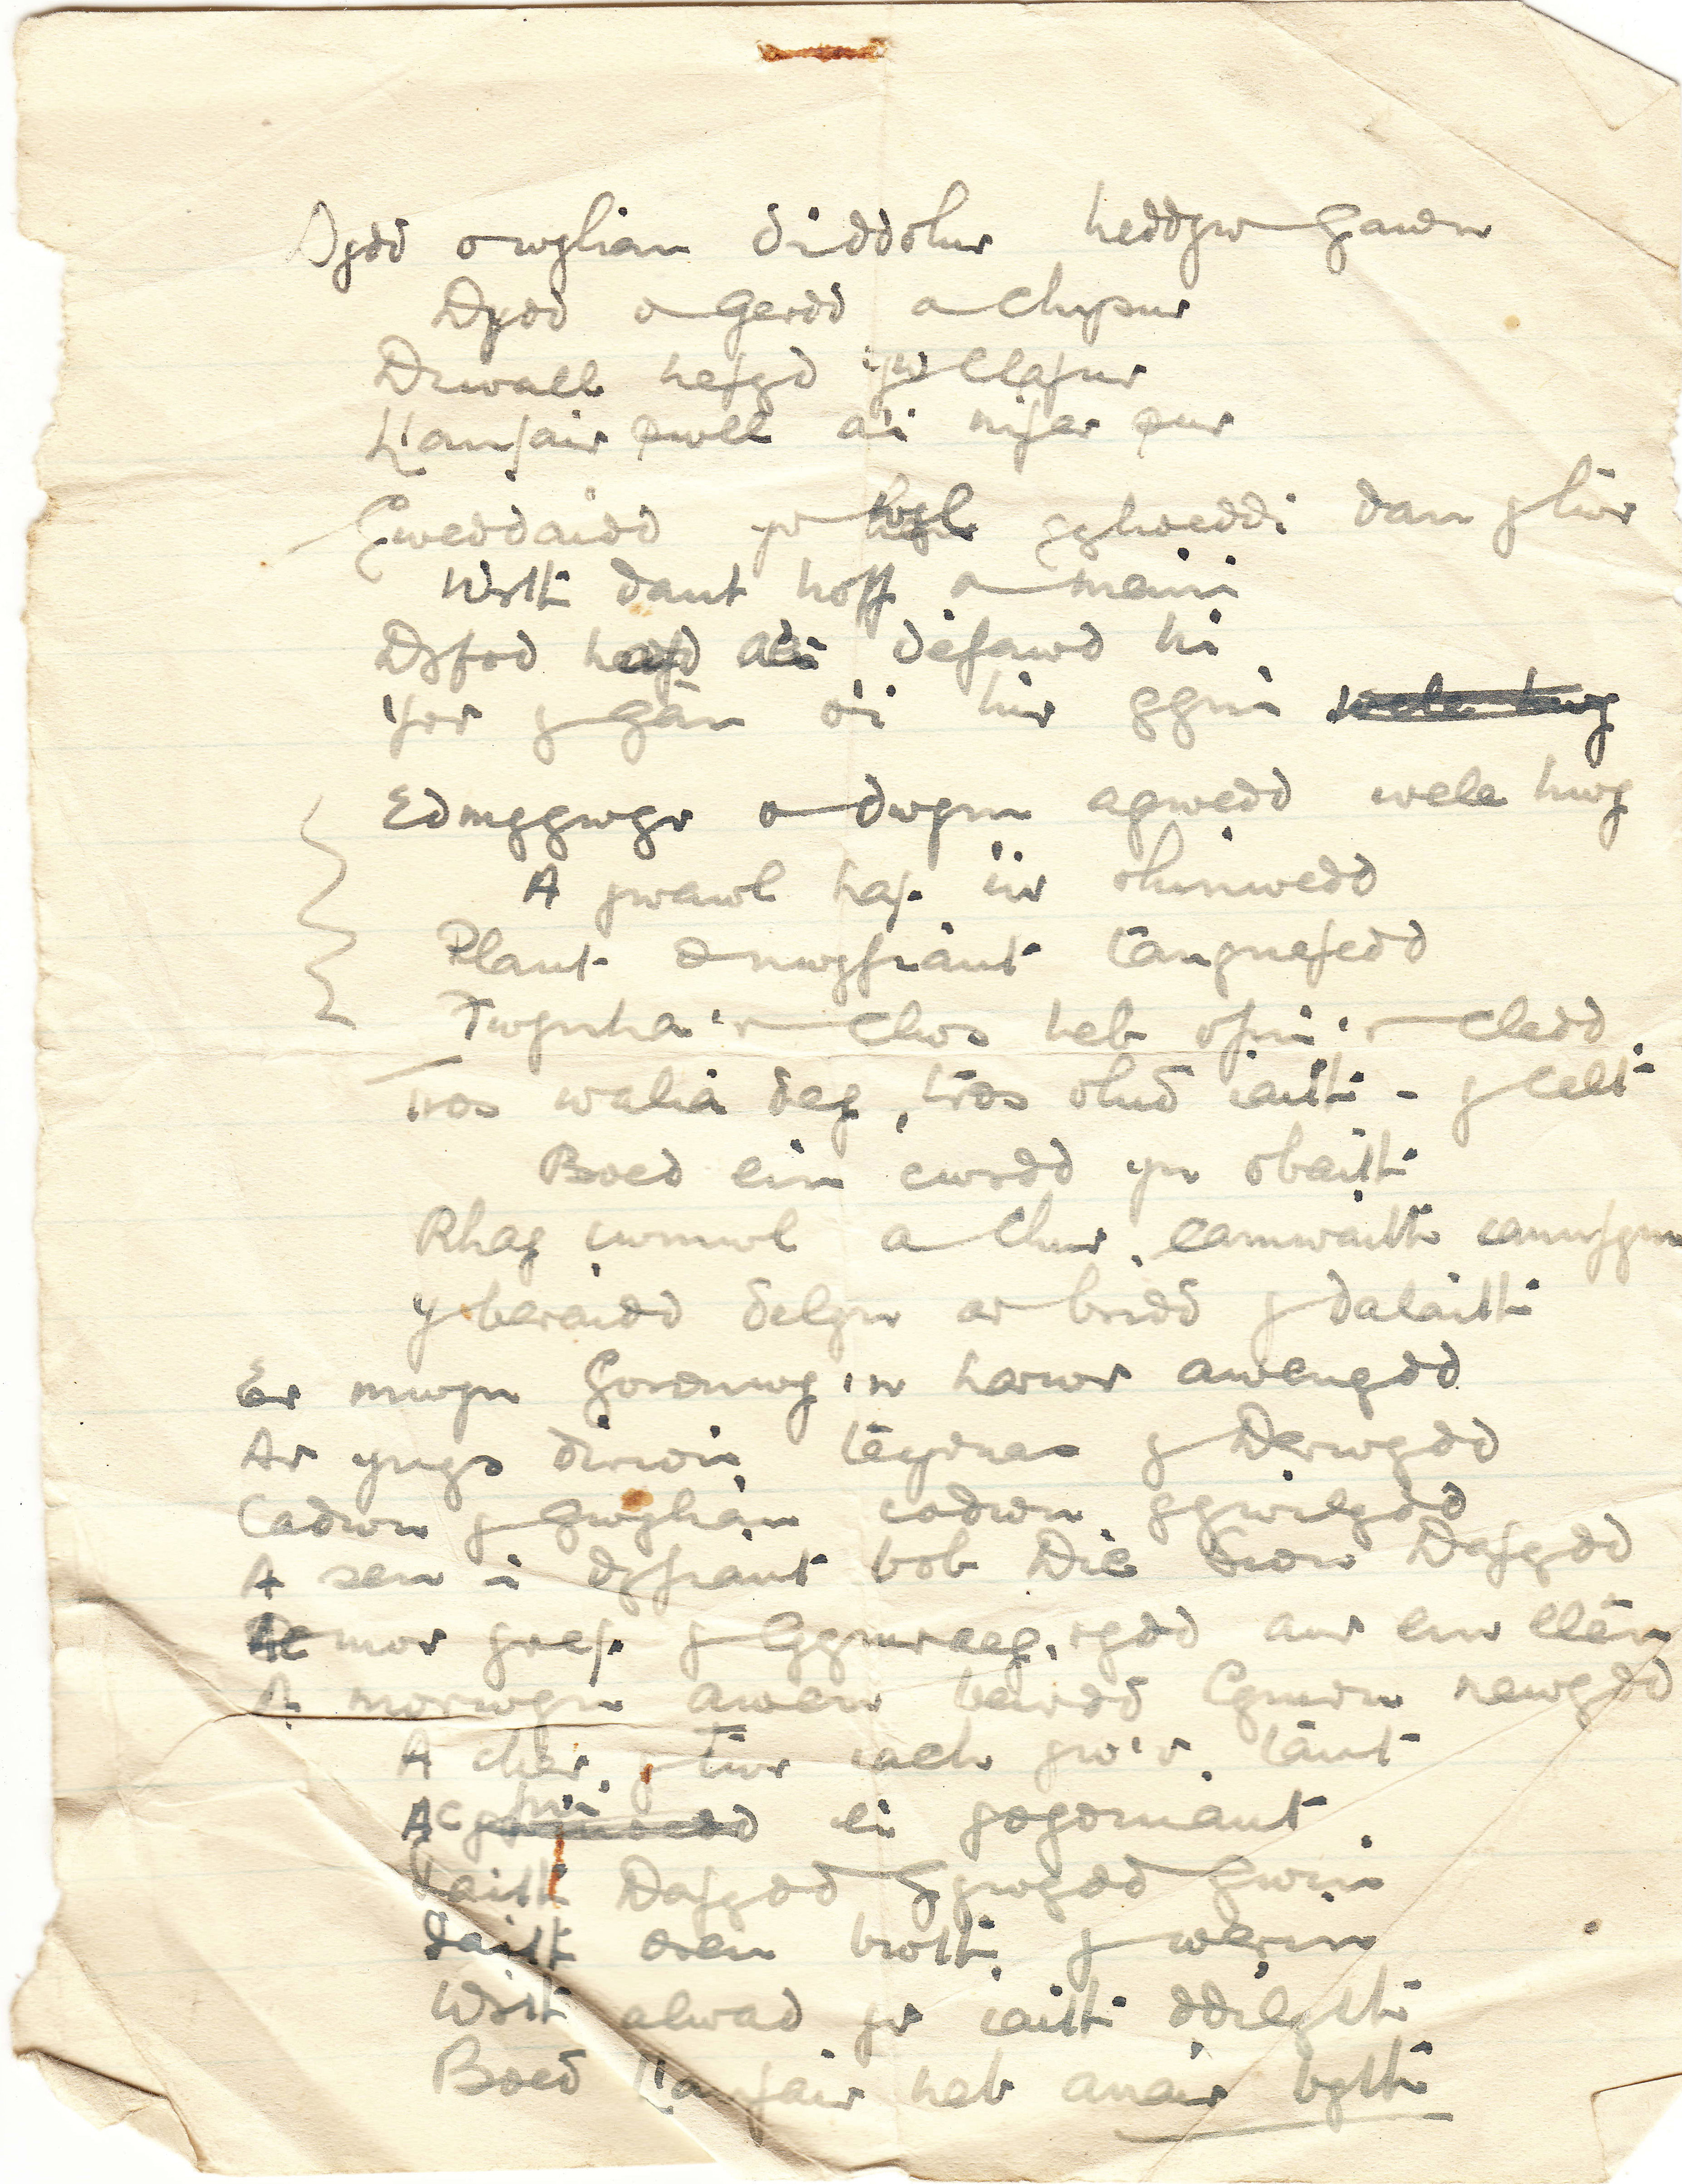 Dydd o wylian diddolur heddyw gawdn
Dydd o gerdd a chysur
Diwall hefyd yw llafur
Llanfair pwll a'i nifer pur
Gweddaidd yw hwyl yglweddi dan y lliw
Wrth dant hoff a meini
Dyfod hefyd a'i defawd hi
Yw'r y gân o'i hir gyni
Edmygwyr a dwym agwedd wele hwy
A gwawl haf i'w rhinwedd
Plant a nwyfiant tangnefedd
Twynha'r clws heb ofni'r cledd
tros walia deg, tros olud iaith - y celt
Boed ein cwrdd yn obaith
Rhag cwmwl a chur camwaith
Y beraidd delyn ar bridd y dalaith
Er mwyn Goronwy 'n harwr awenydd
Ar ynys dirion teyrnas y Derwydd
Cadwn y gwylian codwn ygwilydd
A sen i dyfiant bob Die Sion Dafydd
mor gref y Gymraeg, rydd aur ein llên
A morwyn awen beirdd Cymru newydd
A cher y twr iach yw'r tant
Ac yfni ei gogoniant
Iaith Dafydd Gwydd Gwin
Iaith oren broth y werin
Wrth alwad yr iaith ddilyth
Boed Llanfair heb anair byth